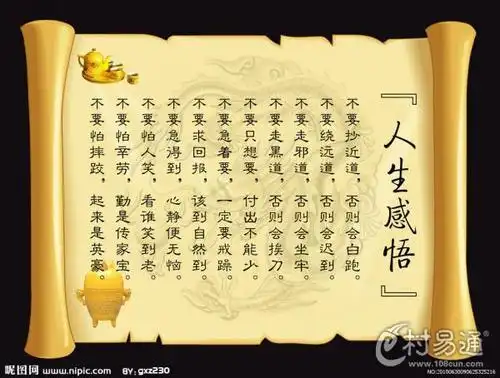 『人生感悟』
不要抄近道，否则会白跑。
不要绕远道，否则会迟到。
不要走邪道，否则会坐牢。
不要走黑道，否则会挨刀。
不要只想要，付出不能少。
不要急着要，一定要戒躁。
不要求回报，该到自然到。
不要急得到，心静便无恼。
不要怕人笑，看谁笑到老。
不要怕辛劳，勤是传家宝。
不要怕摔跤，起来是英豪。
村易通
www.108cun.com
昵图网 www.nipic.com BY: gxz230
NO:20100620090625325216